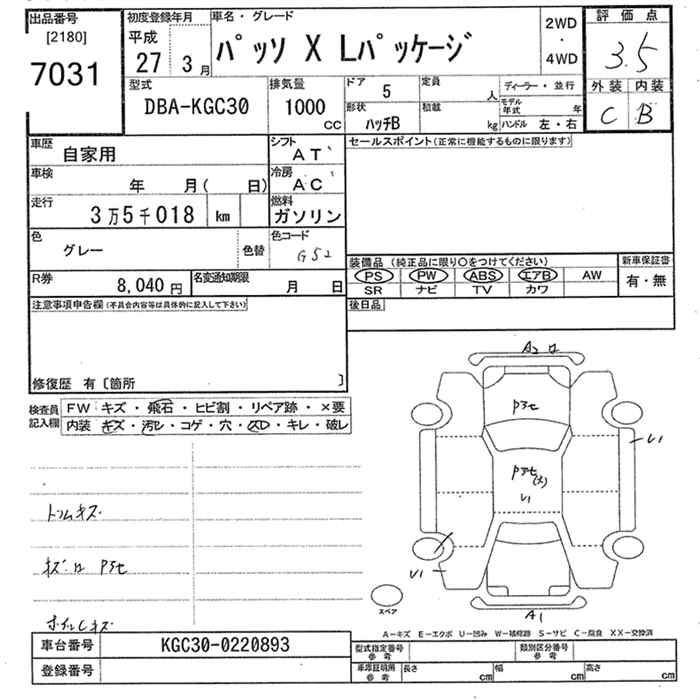 出品番号
[2180]
7031
初度登録年月
平成
27 3月
車名・グレード
パッソ X Lパッケージ
2WD
・
4WD
評価点
3.5
外装 内装
C B
型式
DBA-KGC30
排気量
1000
CC
ドア 5
形状
ハッチB
定員
人
積載
kg
ディーラー・並行
モデル年式 年
ハンドル 左・右
車歴
自家用
シフト
AT
車検
年 月( 日)
冷房
AC
走行
3万5千018 km
燃料
ガソリン
色
グレー
色替
色コード
G52
R券
8,040円
名変通知期限
月 日
セールスポイント(正常に機能するものに限ります)
装備品 (純正品に限り○をつけてください)
PS PW ABS エアB AW
SR ナビ TV カワ
新車保証書
有・無
後日品
注意事項申告欄(不具合内容等は具体的に記入して下さい)
修復歴 有〔箇所 〕
検査員
記入欄
FW キズ・飛石・ヒビ割・リペア跡・×要
内装 キズ・汚レ・コゲ・穴・スレ・キレ・破レ
トリムキズ
キズ・ロ Pアセ
ホイルCキズ
A2 ロ
Pアセ
Pアセ(大)
U1
U1
U1
A1
スペア
A-キズ E-エクボ U-凹み W-補修跡 S-サビ C-腐食 XX-交換済
車台番号
KGC30-0220893
登録番号
型式指定番号
参考
類別区分番号
参考
車庫証明用
参考
長さ cm
幅 cm
高さ cm